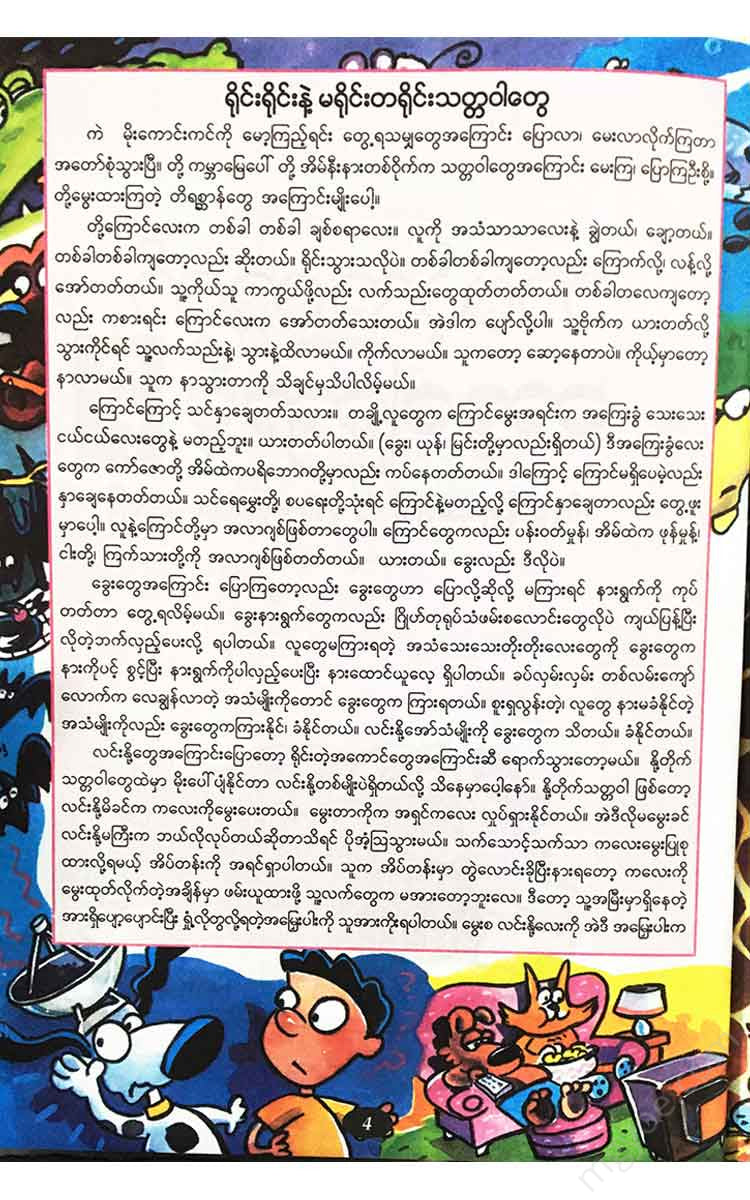 ရိုင်းရိုင်းနဲ့ မရိုင်းတရိုင်းသတ္တဝါတွေ
ကဲ မိုးကောင်းကင်ကို မော့ကြည့်ရင်း တွေ့ရသမျှတွေအကြောင်း ပြောလာ၊ မေးလာလိုက်ကြတာ
အတော်စုံသွားပြီ။ တို့ ကမ္ဘာမြေပေါ် တို့ အိမ်နီးနားတစ်ဝိုက်က သတ္တဝါတွေအကြောင်း မေးကြ၊ ပြောကြဦးစို့။
တို့မွေးထားကြတဲ့ တိရစ္ဆာန်တွေ အကြောင်းမျိုးပေါ့။
တို့ကြောင်လေးက တစ်ခါ တစ်ခါ ချစ်စရာလေး။ လူကို အသံသာသာလေးနဲ့ ချွဲတယ်၊ ချော့တယ်။
တစ်ခါတစ်ခါကျတော့လည်း ဆိုးတယ်။ ရိုင်းသွားသလိုပဲ။ တစ်ခါတစ်ခါကျတော့လည်း ကြောက်လို့၊ လန့်လို့
အော်တတ်တယ်။ သူ့ကိုယ်သူ ကာကွယ်ဖို့လည်း လက်သည်းတွေထုတ်တတ်တယ်။ တစ်ခါတလေကျတော့
လည်း ကစားရင်း ကြောင်လေးက အော်တတ်သေးတယ်။ အဲဒါက ပျော်လို့ပါ။ သူ့ဗိုက်က ယားတတ်လို့
သွားကိုင်ရင် သူ့လက်သည်းနဲ့၊ သွားနဲ့ထိလာမယ်။ ကိုက်လာမယ်။ သူကတော့ ဆော့နေတာပဲ။ ကိုယ့်မှာတော့
နာလာမယ်။ သူက နာသွားတာကို သိချင်မှသိပါလိမ့်မယ်။
ကြောင်ကြောင့် သင်နှာချေတတ်သလား။ တချို့လူတွေက ကြောင်မွေးအရင်းက အကြေးခွံ သေးသေး
ငယ်ငယ်လေးတွေနဲ့ မတည့်ဘူး။ ယားတတ်ပါတယ်။ (ခွေး၊ ယုန်၊ မြင်းတို့မှာလည်းရှိတယ်) ဒီအကြေးခွံလေး
တွေက ကော်ဇောတို့ အိမ်ထဲကပရိဘောဂတို့မှာလည်း ကပ်နေတတ်တယ်။ ဒါကြောင့် ကြောင်မရှိပေမဲ့လည်း
နှာချေနေတတ်တယ်။ သင်ရေမွှေးတို့၊ စပရေးတို့သုံးရင် ကြောင်နဲ့မတည့်လို့ ကြောင်နှာချေတာလည်း တွေ့ဖူး
မှာပေါ့။ လူနဲ့ကြောင်တို့မှာ အလာဂျစ်ဖြစ်တာတွေပါ။ ကြောင်တွေကလည်း ပန်းဝတ်မှုန်၊ အိမ်ထဲက ဖုန်မှုန့်၊
ငါးတို့၊ ကြက်သားတို့ကို အလာဂျစ်ဖြစ်တတ်တယ်။ ယားတယ်။ ခွေးလည်း ဒီလိုပဲ။
ခွေးတွေအကြောင်း ပြောကြတော့လည်း ခွေးတွေဟာ ပြောလို့ဆိုလို့ မကြားရင် နားရွက်ကို ကုပ်
တတ်တာ တွေ့ရလိမ့်မယ်။ ခွေးနားရွက်တွေကလည်း ဂြိုဟ်တုရုပ်သံဖမ်းစလောင်းတွေလိုပဲ ကျယ်ပြန့်ပြီး
လိုတဲ့ဘက်လှည့်ပေးလို့ ရပါတယ်။ လူတွေမကြားရတဲ့ အသံသေးသေးတိုးတိုးလေးတွေကို ခွေးတွေက
နားကိုပင့် စွင့်ပြီး နားရွက်ကိုပါလှည့်ပေးပြီး နားထောင်ယူလေ့ ရှိပါတယ်။ ခပ်လှမ်းလှမ်း တစ်လမ်းကျော်
လောက်က လေချွန်လာတဲ့ အသံမျိုးကိုတောင် ခွေးတွေက ကြားရတယ်။ စူးရှလွန်းတဲ့၊ လူတွေ နားမခံနိုင်တဲ့
အသံမျိုးကိုလည်း ခွေးတွေကကြားနိုင်၊ ခံနိုင်တယ်။ လင်းနို့အော်သံမျိုးကို ခွေးတွေက သိတယ်။ ခံနိုင်တယ်။
လင်းနို့တွေအကြောင်းပြောတော့ ရိုင်းတဲ့အကောင်တွေအကြောင်းဆီ ရောက်သွားတော့မယ်။ နို့တိုက်
သတ္တဝါတွေထဲမှာ မိုးပေါ်ပျံနိုင်တာ လင်းနို့တစ်မျိုးပဲရှိတယ်လို့ သိနေမှာပေါ့နော်။ နို့တိုက်သတ္တဝါ ဖြစ်တော့
လင်းနို့မိခင်က ကလေးကိုမွေးပေးတယ်။ မွေးတာကိုက အရှင်ကလေး လှုပ်ရှားနိုင်တယ်။ အဲဒီလိုမမွေးခင်
လင်းနို့မကြီးက ဘယ်လိုလုပ်တယ်ဆိုတာသိရင် ပိုအံ့ဩသွားမယ်။ သက်သောင့်သက်သာ ကလေးမွေးပြုစု
ထားလို့ရမယ့် အိပ်တန်းကို အရင်ရှာပါတယ်။ သူက အိပ်တန်းမှာ တွဲလောင်းခိုပြီးနားရတော့ ကလေးကို
မွေးထုတ်လိုက်တဲ့အချိန်မှာ ဖမ်းယူထားဖို့ သူ့လက်တွေက မအားတော့ဘူးလေ။ ဒီတော့ သူ့အမြီးမှာရှိနေတဲ့
အားရှိပျော့ပျောင်းပြီး ရှုံ့လိုတွလို့ရတဲ့အမြှေးပါးကို သူအားကိုးရပါတယ်။ မွေးစ လင်းနို့လေးကို အဲဒီ အမြှေးပါးက
4